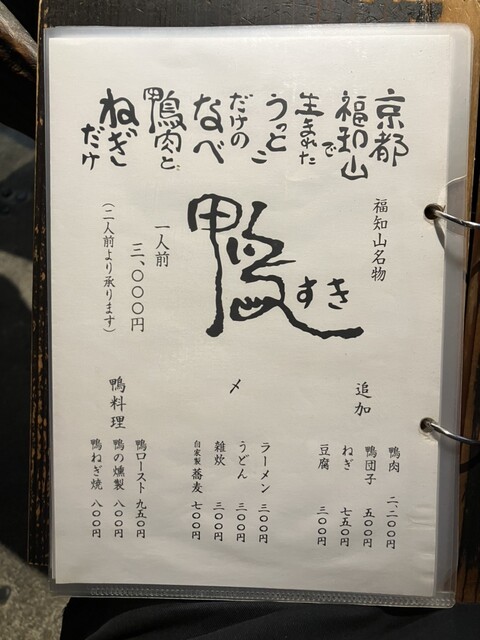 京都
福知山で
生まれた
うっとこ
だけの
なべ
鴨肉と、
ねぎ
だけ
福知山名物
鴨すき
一人前
三、〇〇〇円
(二人前より承ります)
追加
鴨肉 二、二〇〇円
鴨団子 五〇〇円
ねぎ 七五〇円
豆腐 三〇〇円
〆
ラーメン 三〇〇円
うどん 三〇〇円
雑炊 三〇〇円
自家製 蕎麦 七〇〇円
鴨料理
鴨ロースト 九五〇円
鴨の燻製 八〇〇円
鴨ねぎ焼 八〇〇円